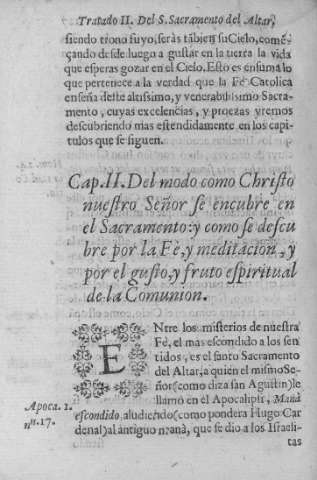 Tratado II. Del S. Sacramento del Altar,
siendo trono suyo, seràs tãbien su Cielo, comẽ-
çando desde luego a gustar en la tierra la vida
que esperas gozar en el Cielo. Esto es en suma lo
que pertenece a la verdad que la Fè Catolica
enseña deste altissimo, y venerabilissimo Sacra-
mento, cuyas excelencias, y proezas yremos
descubriendo mas estendidamente en los capi-
tulos que se siguen.
Cap. II. Del modo como Christo
nuestro Señor se encubre en
el Sacramento: y como se descu
bre por la Fè, y meditacion, y
por el gusto, y fruto espiritual
de la Comunion.
ENtre los misterios de nuestra
Fè, el mas escondido a los sen
tidos, es el santo Sacramento
del Altar, a quien el mismo Se-
ñor (como diza san Agustin) le
Apoca. 2.
llamò en el Apocalipsi, Manà
nu. 17.
escondido, aludiendo (como pondera Hugo Car
denal) al antiguo manà, que se dio a los Israeli-
tas